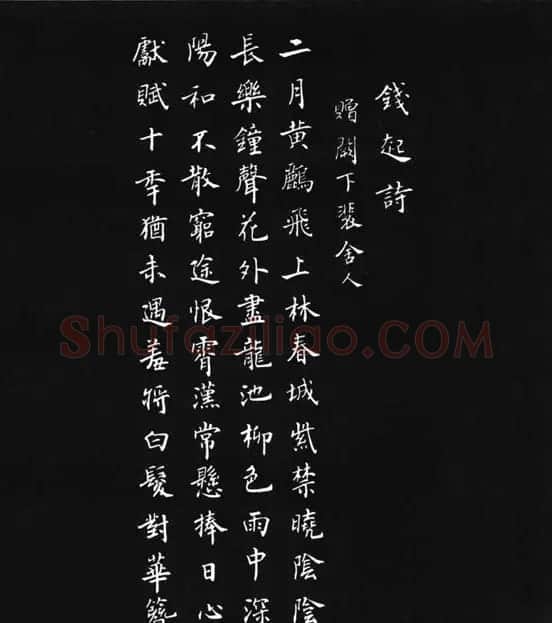 錢起詩
贈闕下裴舍人
二月黃鸝飛上林春城紫禁曉陰陰
長樂鐘聲花外盡龍池柳色雨中深
陽和不散窮途恨霄漢常懸捧日心
獻賦十年猶未遇羞將白髮對華簪
Shufaziliao.COM